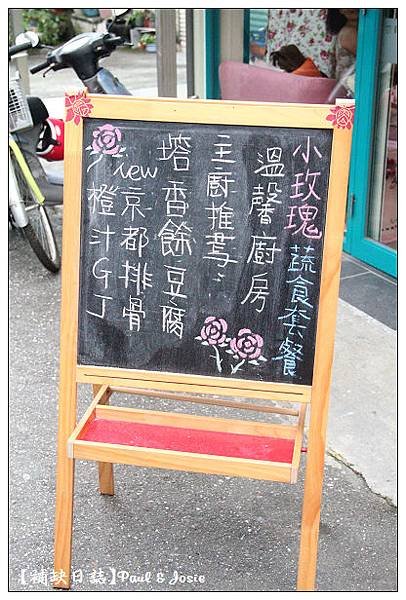 小玫瑰蔬食套餐
溫馨廚房
主廚推薦:
塔香餘豆腐
new京都排骨
橙汁GJ
【補缺日誌】Paul & Josie